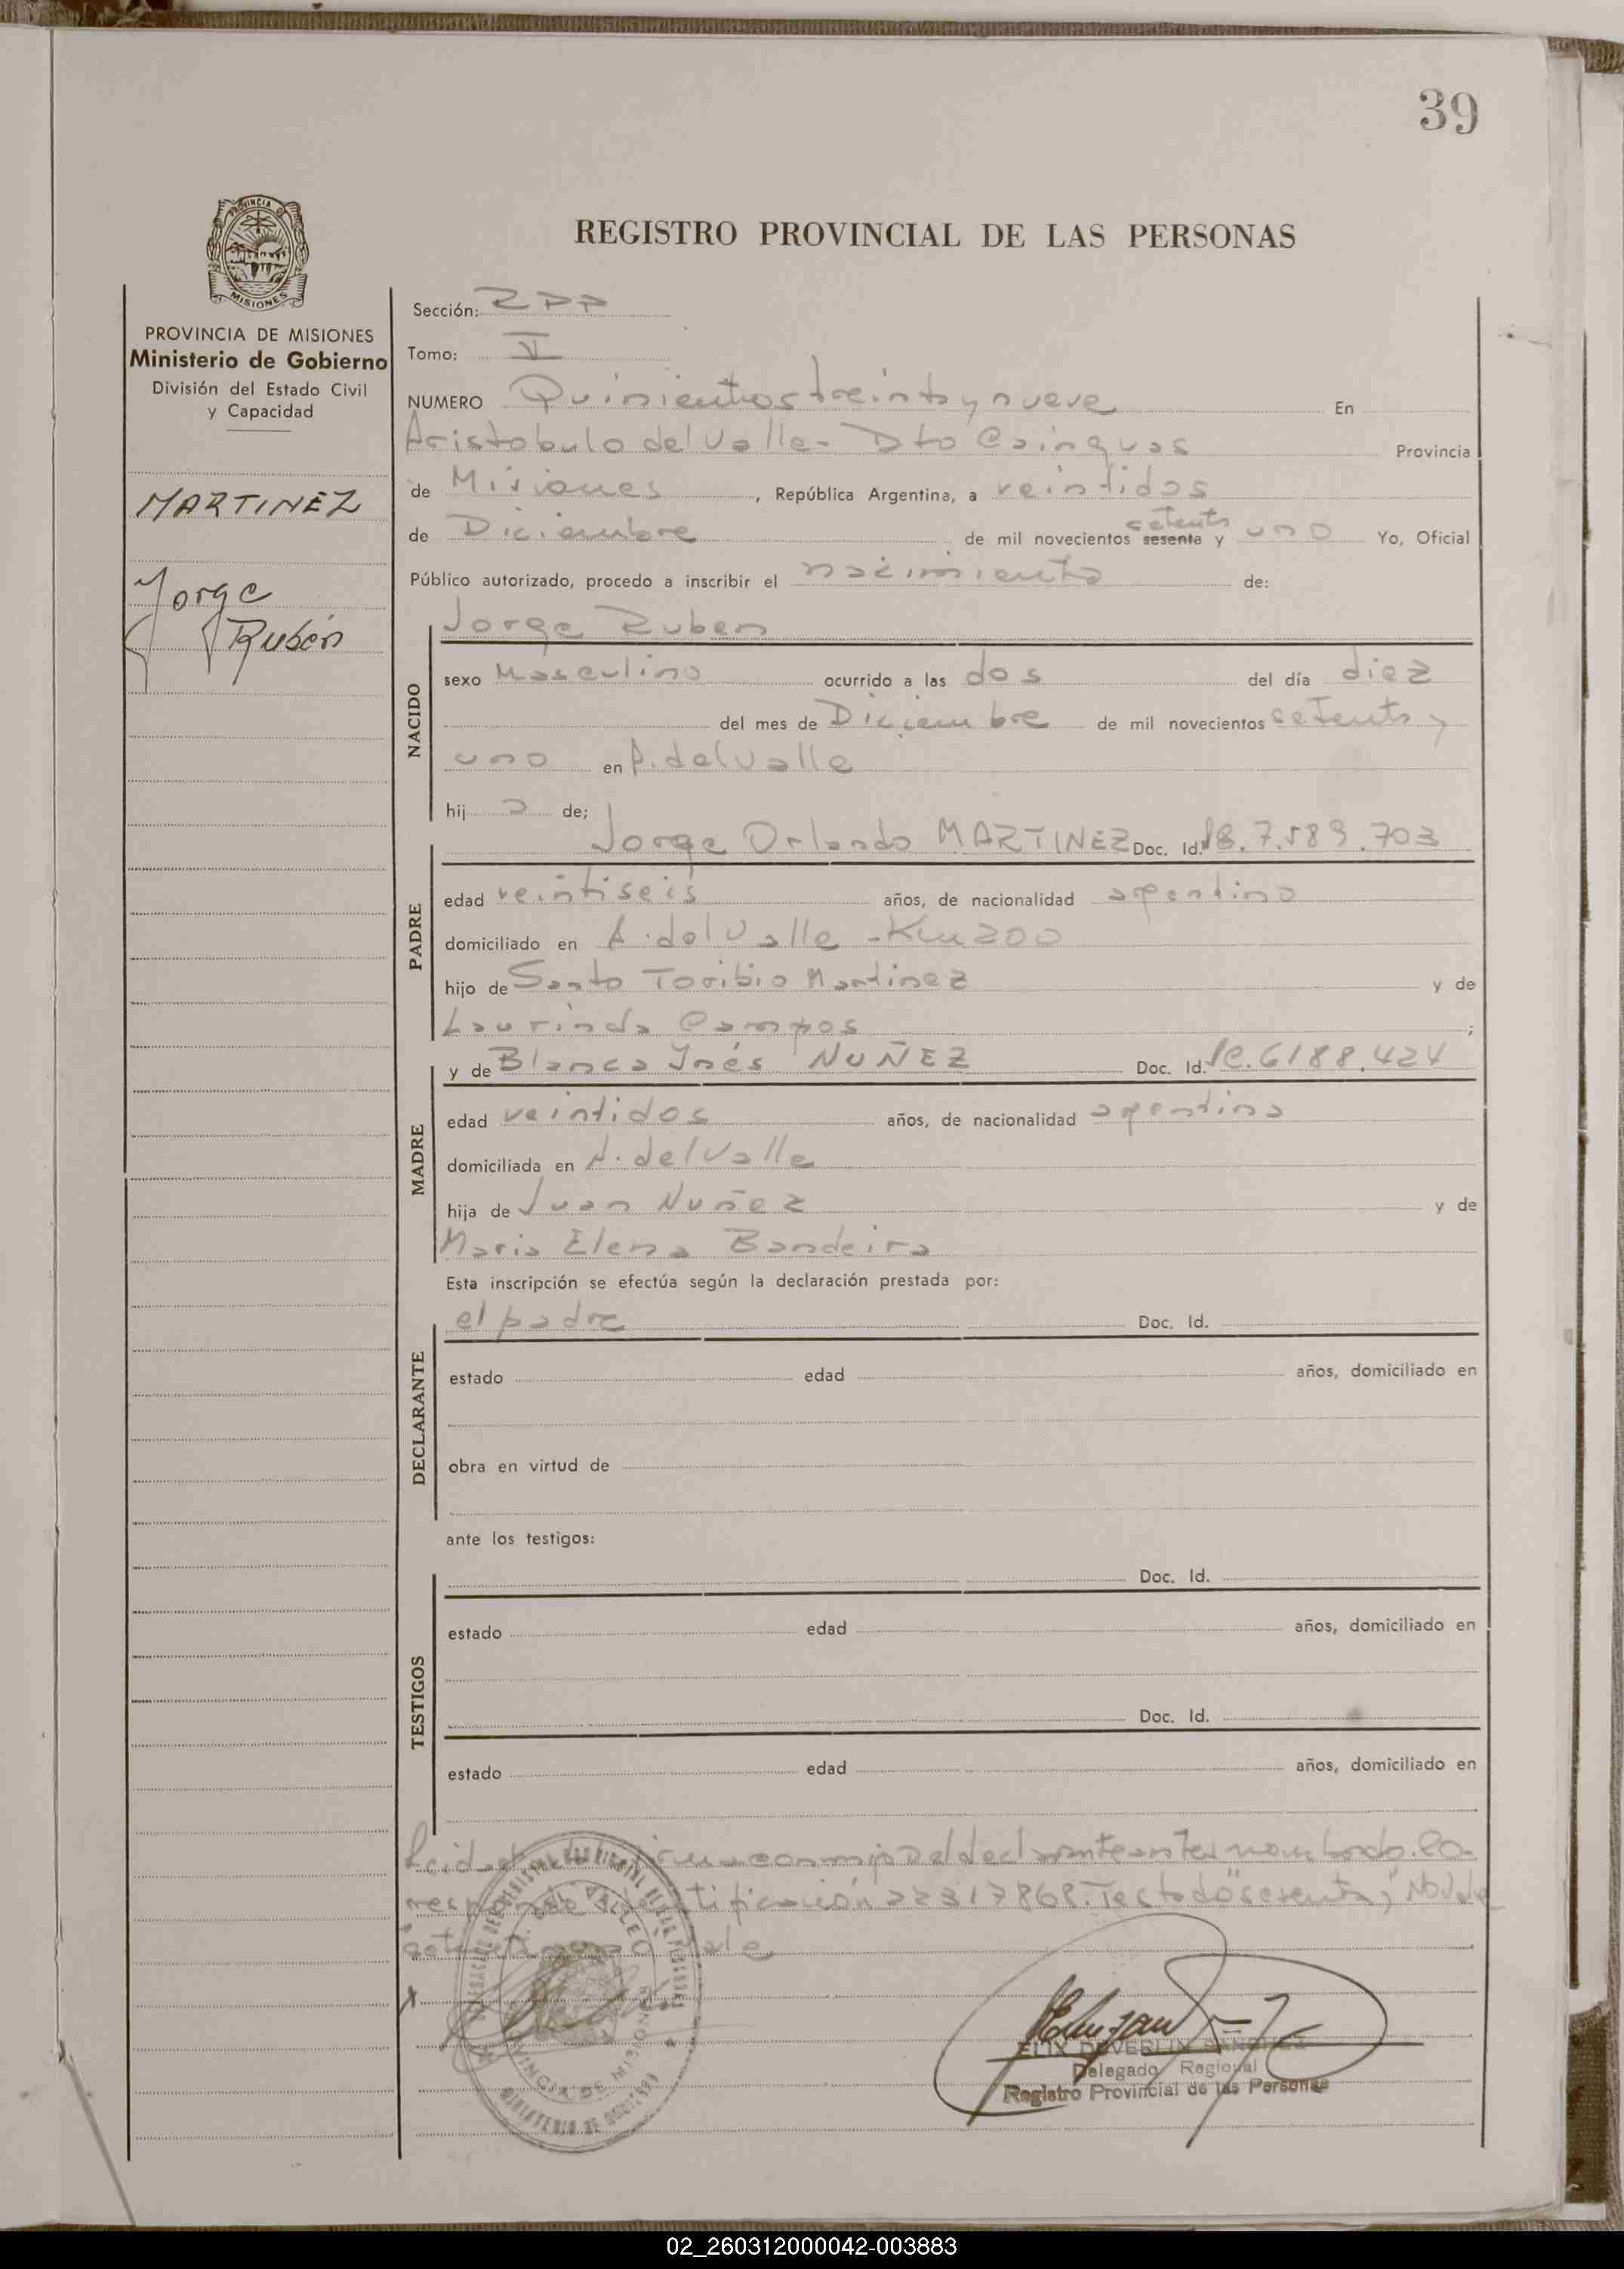 39
PROVINCIA DE
MISIONES
REGISTRO PROVINCIAL DE LAS PERSONAS
PROVINCIA DE MISIONES
Ministerio de Gobierno
División del Estado Civil
y Capacidad
MARTINEZ
Jorge
Rubén
Sección: RPP
Tomo: V
NUMERO Quinientos treinta y nueve En
Aristobulo del Valle - Dto Cainguas Provincia
de Misiones, República Argentina, a veintidos
de Diciembre de mil novecientos sesenta setenta y uno Yo, Oficial
Público autorizado, procedo a inscribir el nacimiento de:
NACIDO
Jorge Ruben
sexo Masculino ocurrido a las dos del día diez
del mes de Diciembre de mil novecientos setenta y
uno en A. del Valle
hijo de;
PADRE
Jorge Orlando MARTINEZ Doc. Id. 7.589.703
edad veintiseis años, de nacionalidad argentino
domiciliado en A. del Valle - Km 200
hijo de Santo Toribio Martinez y de
Laurinda Campos ;
MADRE
y de Blanca Inés NUÑEZ Doc. Id. lc. 6188.424
edad veintidos años, de nacionalidad argentina
domiciliada en A. del Valle
hija de Juan Nuñez y de
Maria Elena Bandeira
Esta inscripción se efectúa según la declaración prestada por:
DECLARANTE
el padre Doc. Id.
estado edad años, domiciliado en
obra en virtud de
ante los testigos:
TESTIGOS
Doc. Id.
estado edad años, domiciliado en
Doc. Id.
estado edad años, domiciliado en
Leida conmigo el declarante antes nombrado. Co-
22317868. Testado "sesenta", No vale
vale
DEL VALLE
PROVINCIA DE MISIONES
MINISTERIO DE GOBIERNO
Delegado Regional
Registro Provincial de las Personas
02_260312000042-003883